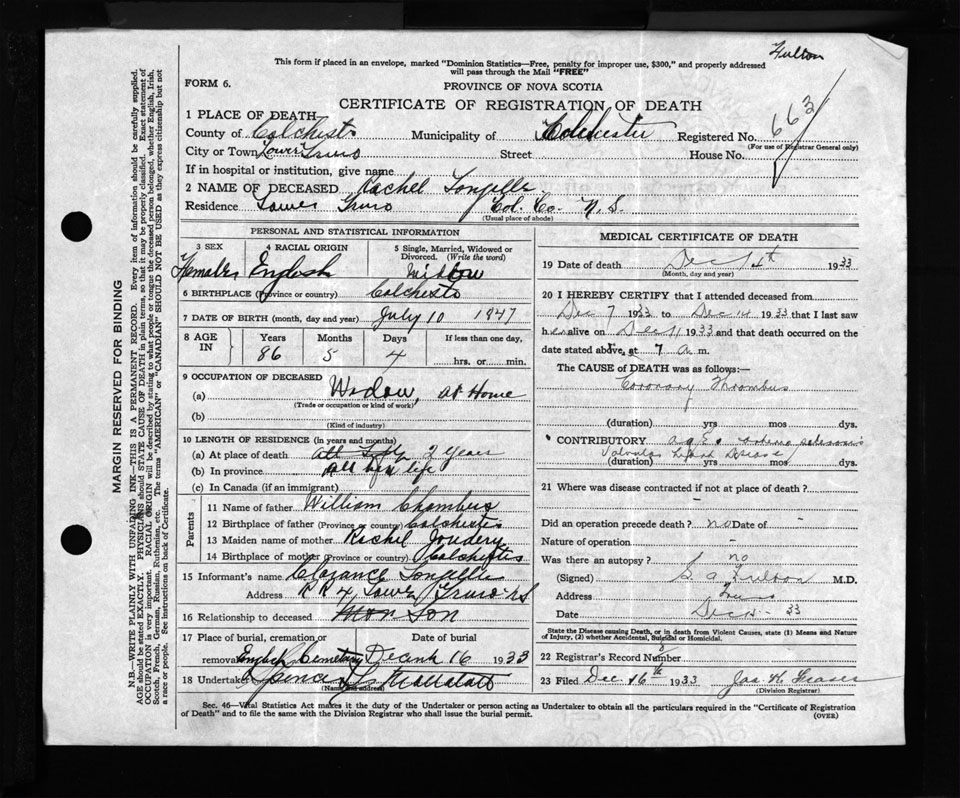 Fulton
This form if placed in an envelope, marked "Dominion Statistics—Free, penalty for improper use, $300," and properly addressed
will pass through the Mail "FREE"
FORM 6.
PROVINCE OF NOVA SCOTIA
CERTIFICATE OF REGISTRATION OF DEATH
1 PLACE OF DEATH
County of Colchester Municipality of Colchester Registered No. 663
(For use of Registrar General only)
City or Town Lower Truro Street House No.
If in hospital or institution, give name
2 NAME OF DECEASED Rachel
Residence Lower Truro Col. Co. N.S.
(Usual place of abode)
PERSONAL AND STATISTICAL INFORMATION
3 SEX 4 RACIAL ORIGIN 5 Single, Married, Widowed or Divorced. (Write the word)
Female English Widow
6 BIRTHPLACE (Province or country) Colchester
7 DATE OF BIRTH (month, day and year) July 10 1847
8 AGE IN Years Months Days If less than one day,
86 5 4 hrs. or min.
9 OCCUPATION OF DECEASED
(a) Widow, at Home
(Trade or occupation or kind of work)
(b)
(Kind of industry)
10 LENGTH OF RESIDENCE (in years and months)
(a) At place of death 2 years
(b) In province All her life
(c) In Canada (if an immigrant)
Parents
11 Name of father William Chambers
12 Birthplace of father (Province or country) Colchester
13 Maiden name of mother Rachel
14 Birthplace of mother (Province or country) Colchester
15 Informant's name Clarance
Address R R 4, Lower Truro NS
16 Relationship to deceased Son
17 Place of burial, cremation or removal Date of burial
Cemetary 16 1933
18 Undertaker
(Name and address)
MEDICAL CERTIFICATE OF DEATH
19 Date of death Dec 14th 1933
(Month, day and year)
20 I HEREBY CERTIFY that I attended deceased from
Dec 7 1933 to Dec 14 1933 that I last saw
her alive on Dec 11 1933 and that death occurred on
date stated above, at 7 a m.
The CAUSE of DEATH was as follows:—
Coronary Thrombus
(duration) yrs mos dys.
CONTRIBUTORY Age
Valvular Heart Disease
(duration) yrs. mos. dys.
21 Where was disease contracted if not at place of death?
Did an operation precede death? no Date of -
Nature of operation -
Was there an autopsy? no
(Signed) S. A. Fulton M.D.
Address Truro
Date Dec 33
State the Disease causing Death, or in death from Violent Causes, state (1) Means and Nature
of Injury, (2) whether Accidental, Suicidal or Homicidal.
22 Registrar's Record Number
23 Filed Dec 16th 1933 Jas. H.
(Division Registrar)
Sec. 46—Vital Statistics Act makes it the duty of the Undertaker or person acting as Undertaker to obtain all the particulars required in the "Certificate of Registration
of Death" and to file the same with the Division Registrar who shall issue the burial permit.
(OVER)
MARGIN RESERVED FOR BINDING
N.B.—WRITE PLAINLY WITH UNFADING INK—THIS IS A PERMANENT RECORD. Every item of information should be carefully supplied.
AGE should be stated EXACTLY. PHYSICIANS should STATE CAUSE OF DEATH in plain terms, so that it may be properly classified. Exact statement of
OCCUPATION is very important. RACIAL ORIGIN will be described by stating to what people or tongue the deceased person belonged, whether English, Irish,
Scotch, French, German, Russian, Ruthenian, etc. The terms "AMERICAN" or "CANADIAN" SHOULD NOT BE USED as they express citizenship but not
a race or people. See instructions on back of Certificate.